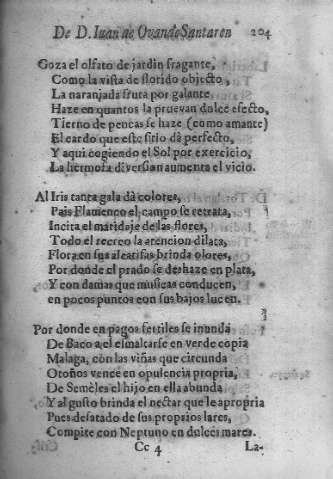 De D. Iuan de Ovando Santaren 204
Goza el olfato de jardin fragante,
Como la vista de florido objecto,
La naranjada fruta por galante
Haze en quantos la pruevan dulce efecto,
Tierno de pencas se haze (como amante)
El cardo que este sitio dà perfecto,
Y aqui cogiendo el Sol por exercicio,
La hermosa diversion aumenta el vicio.
Al Iris tanta gala dà colores,
Pais Flamenco el campo se retrata,
Incita el maridaje de las flores,
Todo el recreo la atencion dilata,
Flora en sus alcatifas brinda olores,
Por donde el prado se deshaze en plata,
Y con damas que musicas conducen,
en pocos puntos con sus bajos lucen.
Por donde en pagos fertiles se inunda
De Baco a el esmalcarse en verde copia
Malaga, con las viñas que circunda
Otoños vence en opulencia propria,
De Semèles el hijo en ella abunda
Y al gusto brinda el nectar que le apropria
Pues desatado de sus proprios lares,
Compite con Neptuno en dulces mares.
Cc 4 La-